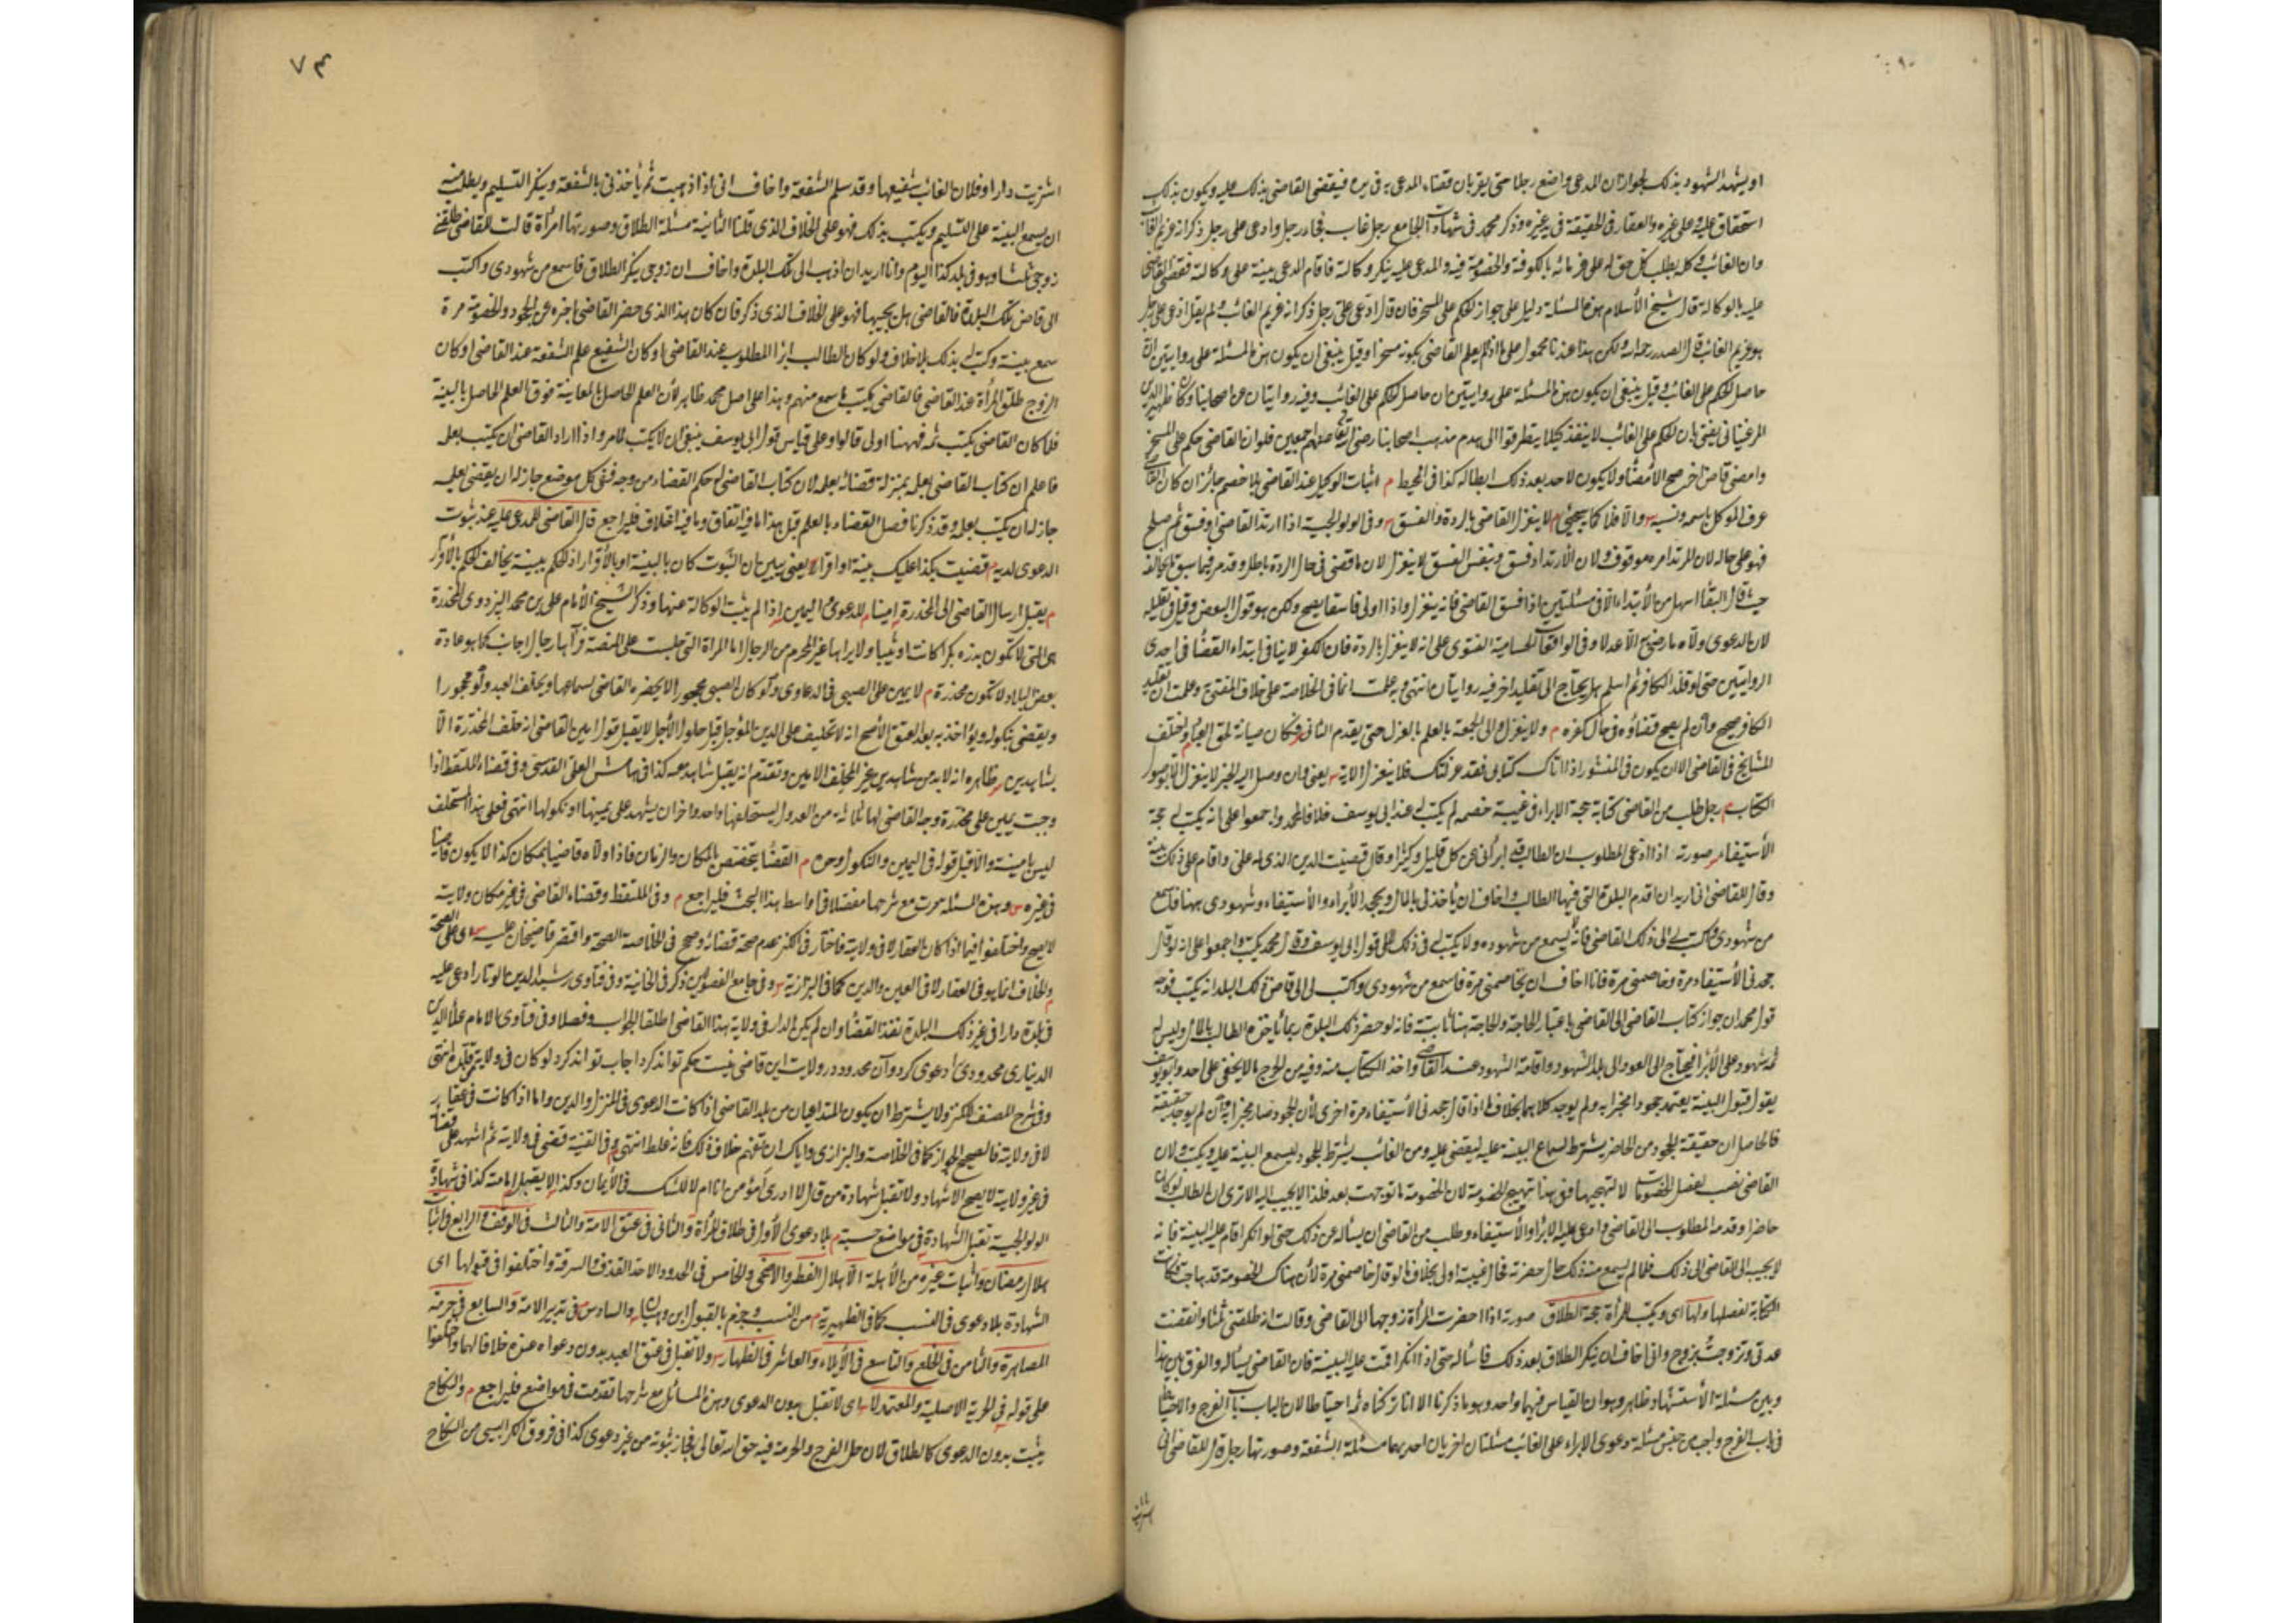 او يشهد الشهود بذلك لجواز ان المدعى واضع رجلا حتى يقر بان قضاء المدعى به فى يده فيقضى القاضى بذلك عليه ويكون بذلك
استحقاق عليه وعلى غيره والعقار فى الحقيقة فى يد غيره وذكر محمد فى شهادات الجامع رجل غاب فجاء رجل وادعى على رجل ذكر انه غريم الغائب
وان الغائب وكله بطلب كل حق له على غرمائه بالكوفة والخصومة فيه والمدعى عليه ينكر وكالته فاقام المدعى بينة على وكالته فقضى القاضى
عليه بالوكالة قال شيخ الأسلام هذه المسئلة دليل على جواز الحكم على المسخر فان قال ادعى على رجل ذكر انه غريم الغائب ولم يقل ادعى على رجل
هو غريم الغائب قال الصدر رحمه الله ولكن هذا عندنا محمول على ما اذا لم يعلم القاضى بكونه مسخرا وقيل ينبغى ان يكون هذه المسئلة على روايتين لان
حاصل الحكم على الغائب وقيل ينبغى ان يكون هذه المسئلة على روايتين لان حاصل الحكم على الغائب وفيه روايتان عن اصحابنا وكان ظهير الدين
المرغينانى يفتى بان الحكم على الغائب لا ينفذ كيلا يتطرقوا الى هدم مذهب اصحابنا رضى الله تعالى عنهم اجمعين فلو ان القاضى حكم على المسخر
وامضى قاض اخر صح الأمضاء ولا يكون لاحد بعد ذلك ابطاله كذا فى المحيط م اثبات الوكيل عند القاضى بلا خصم جائز ان كان القاضى
عرف الموكل باسمه ونسبه س والا فلا كما سيجئ م لا ينعزل القاضى بالردة والفسق س وفى الولوالجية اذا ارتد القاضى او فسق ثم صلح
فهو على حاله لان المرتد امره موقوف ولان الأرتداد فسق وبنفس الفسق لا ينعزل الا ان ما قضى فى حال الردة باطل وقد مر فيما سبق ما يخالفه
حيث قال البقاء اسهل من الأبتداء الا فى مسئلتين اذا فسق القاضى فانه ينعزل واذا اولى فاسقا يصح ولكن هو قول البعض وقيل فى تعليله
لان الدعوى ولاه ما رضى به الا عدلا وفى الواقعات الحسامية الفتوى على انه لا ينعزل بالردة فان الكفر لا ينافى ابتداء القضاء فى احدى
الروايتين حتى لو قلد الكافر ثم اسلم هل يحتاج الى تقليد اخر فيه روايتان انتهى وبه علمت ان ما فى الخلاصة على خلاف المفتى به وعلمت ان تقليد
الكافر صحيح وان لم يصح قضاؤه فى حال كفره م ولا ينعزل والى الجمعة بالعلم بالعزل حتى يقدم الثانى فكان صيانة لحق العباد واختلف
المشايخ فى القاضى الا ان يكون فى المنشور اذا اتاك كتابى فقد عزلتك فلا ينعزل الا به س يعنى بان وصل اليه الخبر لا ينعزل الا بوصول
الكتاب م رجل طلب من القاضى كتابة حجة الابراء فى غيبة خصمه لم يكتب له عند ابى يوسف خلافا لمحمد واجمعوا على انه يكتب له حجة
الأستيفاء س صورته اذا ادعى المطلوب ان الطالب قد ابرأنى عن كل قليل وكثير او قال قبضت الدين الذى له على واقام على ذلك بينة
وقال للقاضى انى اريد ان اقدم البلدة التى فيها الطالب واخاف ان يأخذنى بالمال ويجحد الأبراء والأستيفاء وشهودى ههنا فاسمع
من شهودى واكتب لى الى ذلك القاضى فانه لا يسمع من شهوده ولا يكتب له فى ذلك على قول ابى يوسف وقال محمد يكتب واجمعوا على انه لو قال
جحدنى الأستيفاء مرة وخاصمنى مرة فانا اخاف ان يخاصمنى مرة فاسمع من شهودى واكتب لى الى قاضى ذلك البلد انه يكتب فوجه
قول محمد ان جواز كتاب القاضى الى القاضى باعتبار الحاجة والحاجة هنا ثابتة فانه لو حضر ذلك البلدة ربما يأخذه الطالب بالمال وليس له
ثمه شهود على الأبراء فيحتاج الى العود الى بلد الشهود واقامة الشهود عند القاضى واخذ الكتاب منه وفيه من الحرج ما لا يخفى على احد وابو يوسف
يقول قبول البينة يعتمد جحودا مخبرا به ولم يوجد كلاهما بخلاف ما اذا قال جحدنى الأستيفاء مرة اخرى لأن الجحود صار مخبرا به وان لم يوجد حقيقة
فالحاصل ان حقيقة الجحود من الحاضر يشترط لسماع البينة عليه ليقضى عليه ومن الغائب يشترط الجحود ليسمع البينة عليه ويكتب ولان
القاضى نصب لفصل الخصومات لا لتهيجها ففى هذا تهييج الخصومة لان الخصومة ما توجهت بعد فلذا لا يجيب اليه الا ترى ان الطالب لو كان
حاضرا وقدمه المطلوب الى القاضى وادعى عليه الابراء والأستيفاء وطلب من القاضى ان يسأله عن ذلك حتى لو انكر اقام عليه البينة فانه
لا يجيب له القاضى الى ذلك فلما لم يسمع منه ذلك حال حضرته فحال غيبته اولى بخلاف ما لو قال خاصمنى مرة لأن هناك الخصومة قد هاجت فكانت
الكتابة لفصلها ولها اى ويكتب للمرأة حجة الطلاق صورته اذا احضرت المرأة زوجها الى القاضى وقالت انه طلقنى ثلثا وانقضت
عدتى وتزوجت بزوج وانى اخاف ان ينكر الطلاق بعد ذلك فاسأله حتى اذا انكر اقمت عليه البينة فان القاضى يسأله والفرق بين هذا
وبين مسئلة الأستشهاد ظاهر وهو ان القياس فيهما واحد وهو ما ذكرنا الا انا تركناه ثمه احتياطا لان الباب باب الفرج والاحتياط
فى باب الفرج واجب من جنس مسئلة دعوى الابراء على الغائب مسئلتان اخريان احديهما مسئلة الشفعة وصورتها رجل قال للقاضى انى
٧٤
اشتريت دارا وفلان الغائب شفيعها وقد سلم الشفعة واخاف انى اذا ذهبت ثم يأخذنى بالشفعة وينكر التسليم ويطلب منه
ان يسمع البينة على التسليم ويكتب بذلك فهو على الخلاف الذى قلنا الثانية مسئلة الطلاق وصورتها امرأة قالت للقاضى طلقنى
زوجى ثلثا وهو فى بلد كذا اليوم وانا اريد ان اذهب الى تلك البلدة واخاف ان زوجى ينكر الطلاق فاسمع من شهودى واكتب
الى قاضى تلك البلدة فالقاضى هل يجيبها فهو على الخلاف الذى ذكر فان كان هذا الذى حضر القاضى اخبره عن الجحود والخصومة مرة
سمع بينته وكتب له بذلك بلا خلاف ولو كان الطالب ابرأ المطلوب عند القاضى او كان الشفيع سلم الشفعة عند القاضى او كان
الزوج طلق المرأة عند القاضى فالقاضى يكتب ما سمع منهم وهذا على اصل محمد ظاهر لأن العلم الحاصل بالمعاينة فوق العلم الحاصل بالبينة
فلما كان القاضى يكتب ثمه فههنا اولى قالوا وعلى قياس قول ابى يوسف ينبغى ان لا يكتب لما مر واذا اراد القاضى ان يكتب بعلمه
فاعلم ان كتاب القاضى بعلمه بمنزلة قضائه بعلمه لان كتاب القاضى له حكم القضاء من وجه ففى كل موضع جاز له ان يقضى بعلمه
جاز له ان يكتب بعلمه وقد ذكرنا فصل القضاء بالعلم قبل هذا ما فيه اتفاق وما فيه اختلاف فليراجع قال القاضى للمدعى عليه عند ثبوت
الدعوى لديه م قضيت بكذا عليك ببينة او اقرار س يعنى يبين ان الثبوت كان بالبينة او بالأقرار اذ الحكم ببينة يخالف الحكم بالأقرار
م يقبل ارسال القاضى الى المخدرة امينا م للدعوى واليمين س اذا لم يثبت الوكالة عنها وذكر الشيخ الأمام على بن محمد البزدوى المخدرة
هى التى لا تكون برزة بكرا كانت او ثيبا ولا يراها غير المحرم من الرجال اما المرأة التى جلبت على المنصة فرآها رجال اجانب كما هو عادة
بعض البلاد لا تكون مخدرة م لا يمين على الصبى فى الدعاوى ولو كان الصبى محجورا لا يحضره القاضى لسماعها ويحلف العبد ولو محجورا
ويقضى بنكوله ويؤاخذ به بعد العتق الأصح انه لا تحليف على الدين المؤجل قبل حلول الأجل لا يقبل قول امين القاضى انه حلف المخدرة الا
بشاهدين س ظاهره انه لابد من شاهدين غير المحلف الامين وتقدم انه يقبل شاهد معه كذا فى هامش العلى القدسى وفى قضاء الملتقط اذا
وجبت يمين على مخدرة وجه القاضى لها ثلاثة من العدول يستحلفها واحد واخران يشهد على يمينها او نكولها انتهى فعلى هذا المستحلف
ليس بامينه والا قبل قوله فى اليمين والنكول وحده م القضاء يتخصص بالمكان والزمان فاذا ولاه قاضيا بمكان كذا لا يكون قاضيا
فى غيره س وهذه المسئلة مرت مع شرحها مفصلا فى اواسط هذا البحث فليراجع م وفى الملتقط وقضاء القاضى فى غير مكان ولايته
لا يصح واختلفوا فيما اذا كان بالعقار لا فى ولايته فاختار فى الكنز عدم صحة قضائه وصحح فى الخلاصة الصحة واقتصر قاضيخان عليه س اى على الصحة
م والخلاف انما هو فى العقار لا فى العين والدين كما فى البزازية س وفى جامع الفصولين ذكر فى الخانية وفى فتاوى رشيد الدين الوتار ادعى عليه
فى بلدة دارا فى غير ذلك البلدة نفذ القضاء وان لم يكن الدار فى ولاية هذا القاضى اطلقا الجواب وفصلا وفى فتاوى الامام علاء الدين
الديناری محدودى را دعوى كرد وآن محدود در ولايت اين قاضى نيست حكم تواند كرد اجاب تواند كرد لو كان فى ولاية مقلده انتهى
وفى شرح المصنف للكنز ولا يشترط ان يكون المتداعيان من بلد القاضى اذا كانت الدعوى فى المنزل والدين واما اذا كانت فى عقار
لا فى ولايته فالصحيح الجواز كما فى الخلاصة والبزازى واياك ان تفهم خلاف ذلك فانه غلط انتهى م وفى القنية قضى فى ولايته ثم اشهد على قضائه
فى غير ولايته لا يصح الاشهاد ولا تقبل شهادة من قال لا ادرى أمؤمن انا ام لا للشك فى الأيمان وكذا لا يقبل امامته كذا فى شهادة
الولوالجية تقبل الشهادة فى مواضع حسبة م بلا دعوى الأول فى طلاق المرأة والثانى فى عتق الامة والثالث فى الوقف والرابع فى اثبات
هلال رمضان واثبات غيره من الأهلة الا هلال الفطر والاضحى والخامس فى الحدود الا حد القذف والسرقة واختلفوا فى قبولها اى
الشهادة بلا دعوى فى النسب كما فى الظهيرية م من النسب وجزم بالقبول ابن وهبان س والسادس فى تدبير الامة والسابع فى حرمة
المصاهرة والثامن فى الخلع والتاسع فى الأيلاء والعاشر فى الظهار س ولا تقبل فى عتق العبد بدون دعواه عنده خلافا لهما واختلفوا
على قوله فى الحرية الاصلية والمعتمد لا س اى لا تقبل بدون الدعوى وهذه المسائل مع شرحها تقدمت فى مواضع فليراجع م والنكاح
يثبت بدون الدعوى كالطلاق لان حل الفرج والحرمة فيه حق الله تعالى فجاز ثبوته من غير دعوى كذا فى فروق الكرابيسى من النكاح